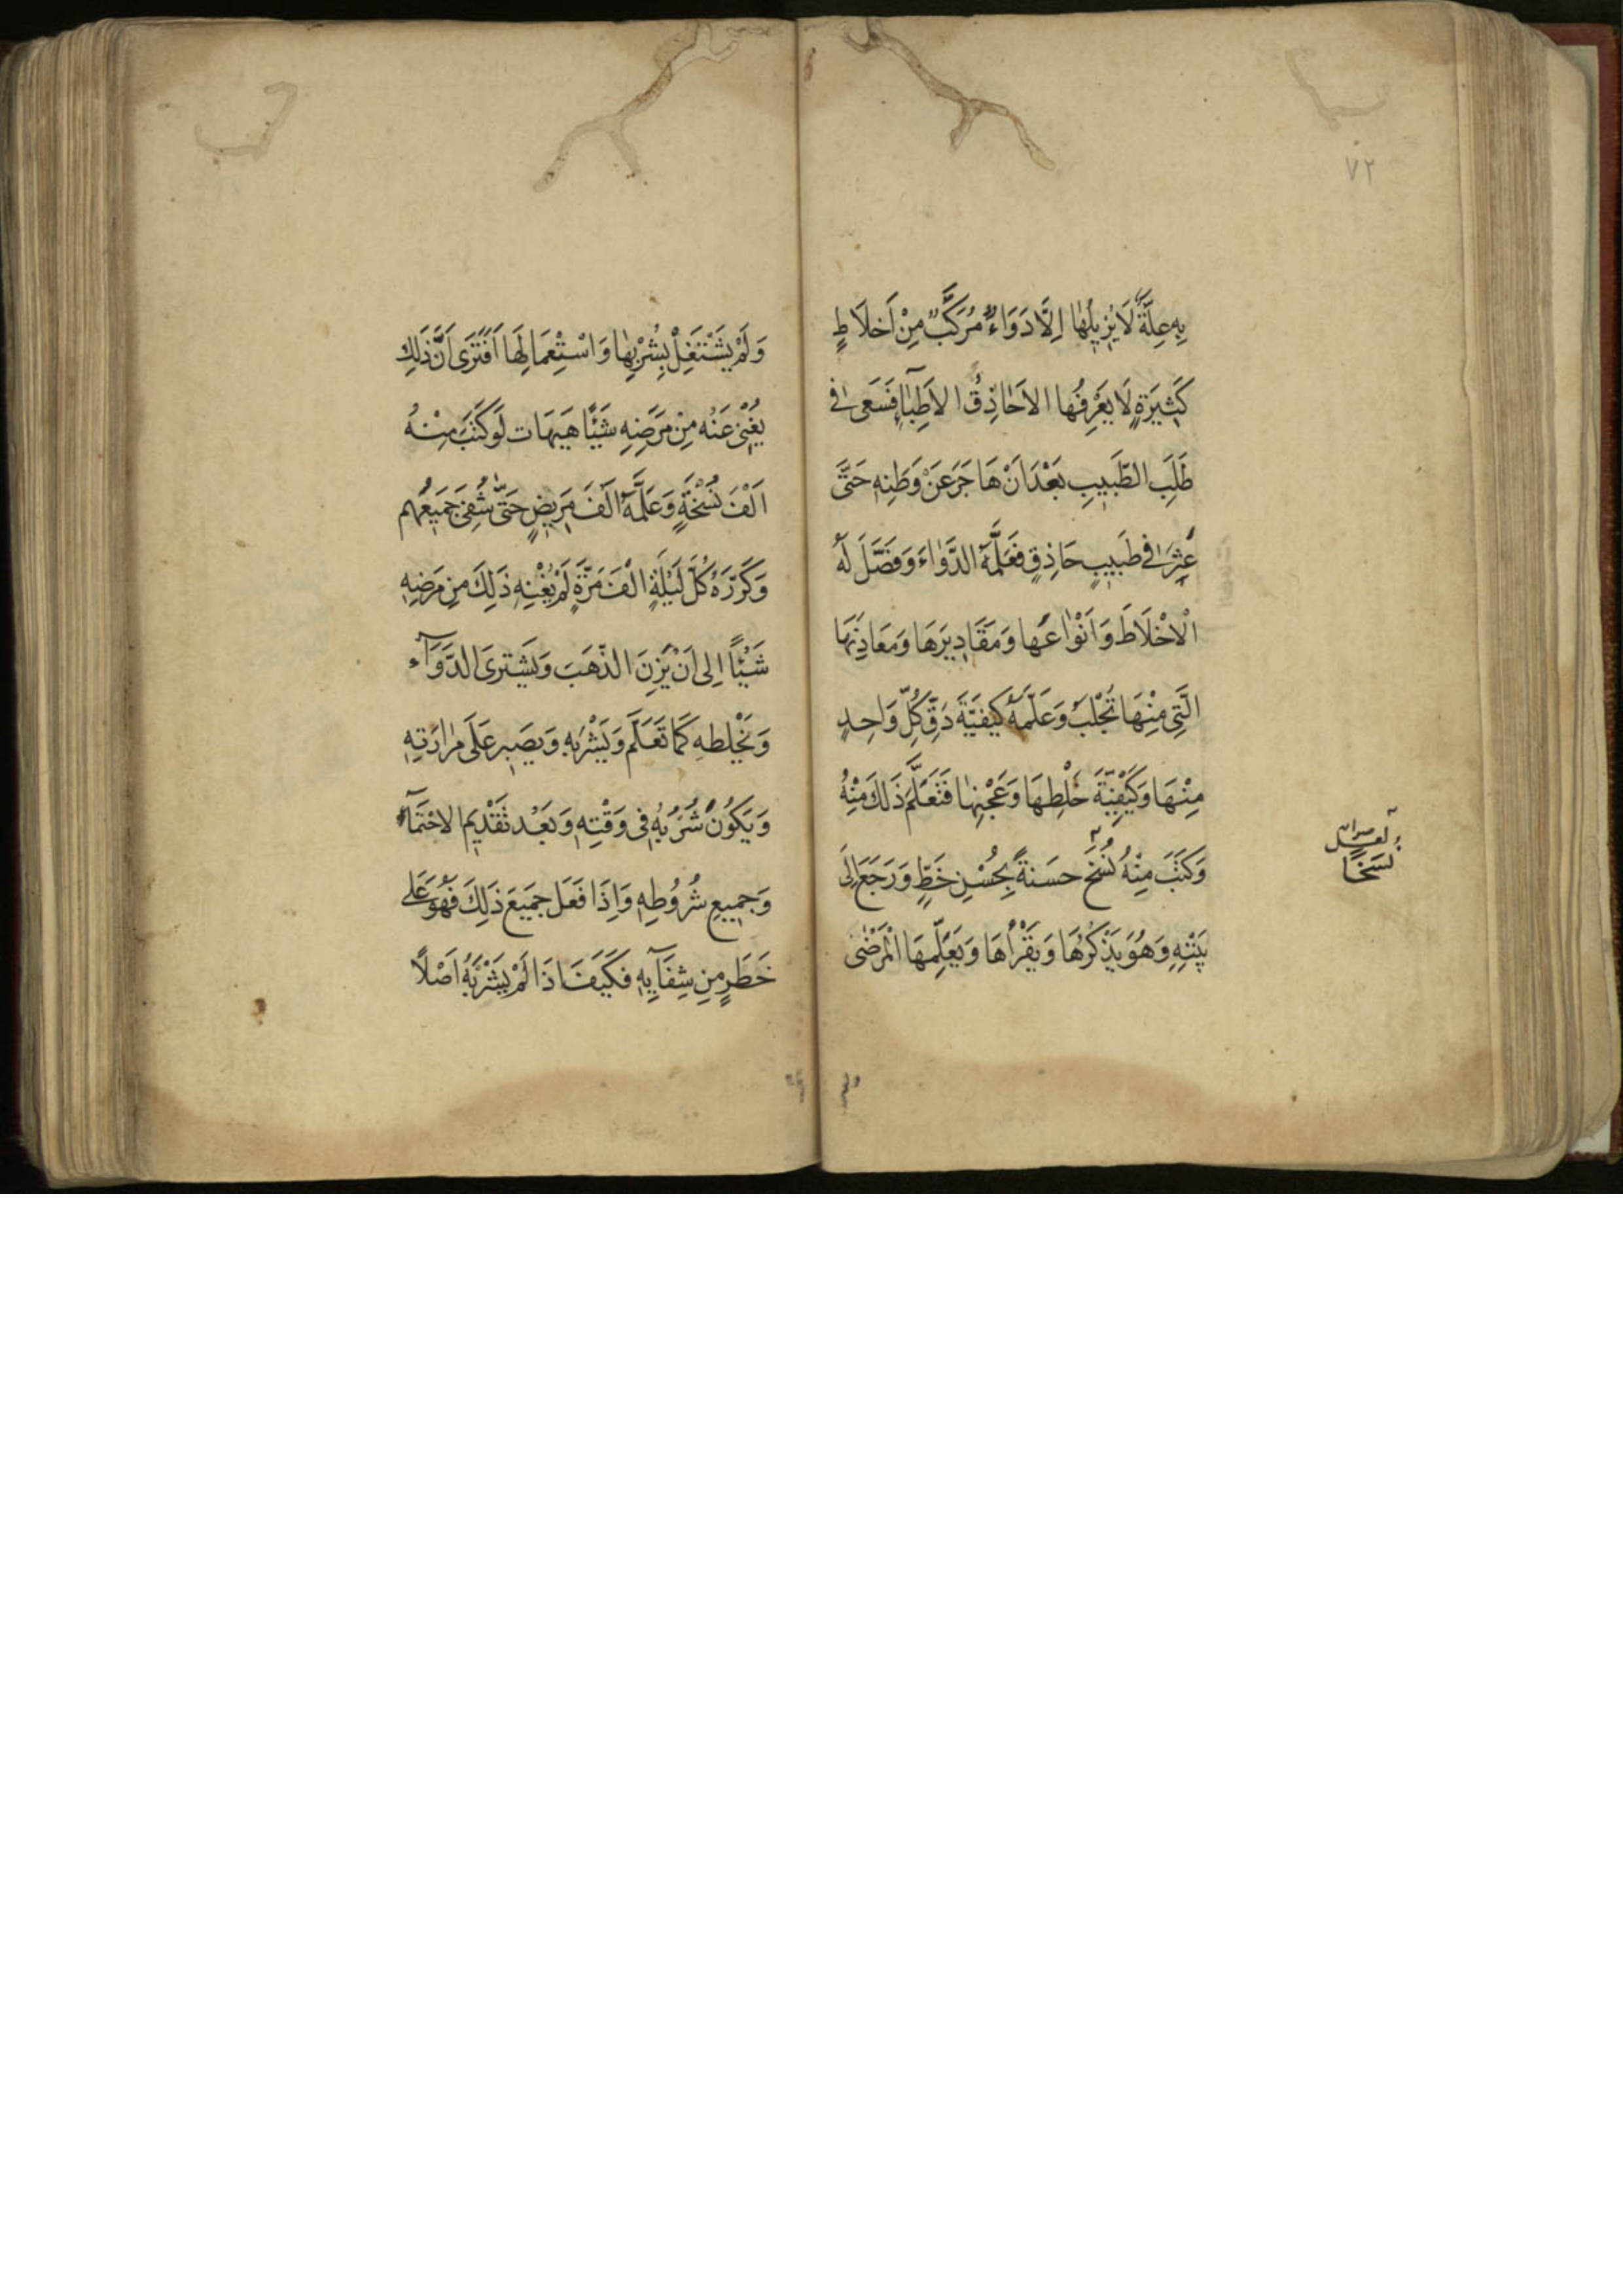 ٧٢
بِهِ عِلَّةٌ لَا يُزِيلُهَا اِلَّا دَوَاءٌ مُرَكَّبٌ مِنْ اَخلَاطٍ
كَثِيرَةٍ لَا يَعْرِفُها الاحَاذِقُ الاَطِبَّآءِ فَسَعَى فى
طَلَبِ الطَّبِيبِ بَعْدَ اَنْ هَاجَرَ عَنْ وَطَنِهِ حَتَّى
عُثِرَ فى طَبِيبٍ حَاذِقٍ فَعَلَّمَهُ الدَّوَاءَ وَفَصَّلَ لَهُ
الْاَخْلَاطَ وَاَنْوَاعَها وَمَقَادِيرَهَا وَمَعَادِنَهَا
الَّتِى مِنْهَا تُجْلَبُ وَعَلَّمَهُ كَيْفِيَّةَ دَقِّ كُلِّ وَاحِدٍ
مِنْهَا وَكَيْفِيَّةَ خَلْطِهَا وَعَجْنِهَا فَتَعَلَّمَ ذَلِكَ مِنْهُ
وَكَتَبَ مِنْهُ نُسَخَ حَسَنةً بِحُسْنِ خَطٍّ وَرَجَعَ اِلَى
بَيْتِهِ وَهُوَ يَذْكُرُهَا وَيَقْرَأُهَا وَيَعَلِّمهَا الْمَرْضٰى
نسخا
وَلَمْ يَشْتَغِلْ بِشُرْبِهَا وَاسْتِعْمَالِهَا اَفَتَرَى اَنَّ ذَلِكَ
يُغْنِى عَنْه مِنْ مَرَضِهِ شَيْئًا هَيهَات لَوكَتَبَ مِنْهُ
اَلْفَ نُسْخَةٍ وَعَلَّمَهُ اَلْفَ مَرِيضٍ حَتَّى شُفِىَ جَمَيعُهم
وَكَرَّرَهُ كُلَّ لَيْلَةٍ اَلْفَ مَرَّةٍ لَمْ يُغْنِهِ ذٰلِكَ مِن مَرَضِهِ
شَيْئًا اِلى اَنْ يَزِنَ الذَّهَبَ وَيَشتَرىَ الدَّوَآء
وَيَخْلِطهِ كَمَا تَعَلَّمَ وَيَشْرَبهِ وَيصَبِر عَلَى مَرٰارَتِهِ
وَيَكُونُ شُرْبُهُ فى وَقْتِهِ وَبَعْد تَقْدِيم الاحْتِمَآءِ
وَجَمِيعِ شُرُوطِهِ وَاِذَا فَعَلَ جَمَيَعَ ذَلِكَ فَهُوَ عَلى
خَطَرٍ مِن شِفَآيِهِ فكَيَفَ اذَا لَمْ يَشْرَبْهُ اَصْلًا